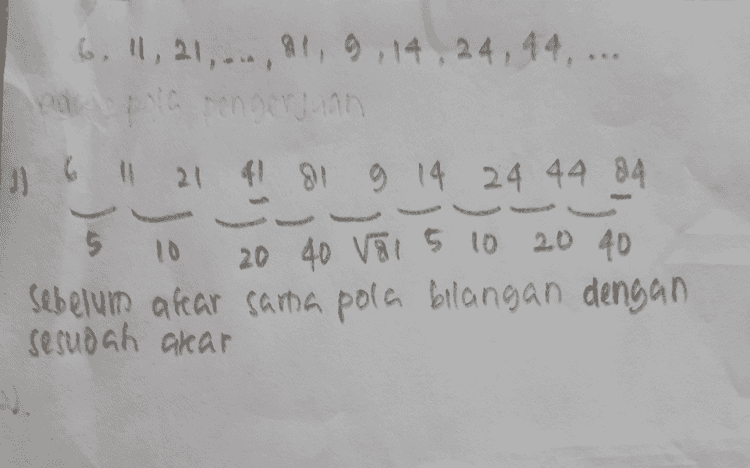 6, 11, 21, ..., 81, 9, 14, 24, 44, ...
pola pengerjaan
1) 6 11 21 41 81 9 14 24 44 84
5 10 20 40 √81 5 10 20 40
sebelum akar sama pola bilangan dengan
sesudah akar
2).